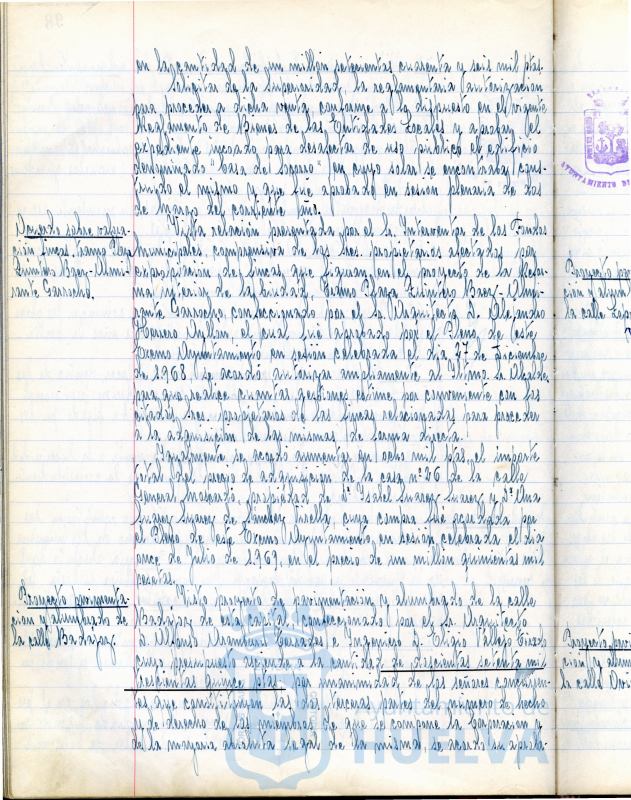 en la cantidad de un millón setecientas cuarenta y seis mil ptas.
Solicitar de la Superioridad, la reglamentaria autorización
para proceder a dicha venta conforme a lo dispuesto en el vigente
Reglamento de Bienes de las Entidades Locales y aprobar el
expediente incoado para desafectar de uso público el edificio
denominado "Casa de Socorro" en cuyo solar se encontraba cons-
truido el mismo y que fué aprobado en sesión plenaria de dos
de Marzo del corriente año.
Acuerdo sobre valora-
ción fincas tramo Plaza
Quintero Baez-Almi-
rante Garrocho.
Vista relación presentada por el Sr. Interventor de los Fondos
municipales, comprensiva de los Sres. propietarios afectados por
expropiación de fincas que figuran en el proyecto de la Refor-
ma interior de la Ciudad, tramo Plaza Quintero Baez-Almi-
rante Garrocho, confeccionado por el Sr. Arquitecto D. Alejandro
Herrero Ayllon el cual fué aprobado por el Pleno de este
Excmo Ayuntamiento en sesión celebrada el día 27 de Diciembre
de 1968, se acordó autorizar ampliamente al Iltmo. Sr. Alcalde
para que realice cuantas gestiones estime, por conveniente con los
citados Sres. propietarios de las fincas relacionadas para proceder
a la adquisición de las mismas de forma directa.
Igualmente se acordó aumentar en ocho mil ptas. el importe
total del precio de adquisición de la casa nº 26 de la calle
General Moscardó, propiedad de Dª Isabel Suarez Suarez y Dª Ana
Suarez Suarez de cuya compra fué acordada por
el Pleno de este Excmo Ayuntamiento, en sesión celebrada el día
once de Julio de 1.969, en el precio de un millón quinientas mil
pesetas.
Proyecto pavimenta-
ción y alumbrado de
la calle Badajoz.
Visto proyecto de pavimentación y alumbrado de la calle
Badajoz de esta capital confeccionado por el Sr. Arquitecto
D. Alfonso e Ingeniero D. Eligio Vallejo
cuyo presupues. asciende a la cantidad de doscientas setenta mil
trescientas quince ptas. por unanimidad de los señores concurren-
tes que constituyen las dos terceras partes del número de hecho
y de derecho de los miembros de que se compone la Corporación y
de la mayoría absoluta legal de la misma, se acordó su aproba-
Ayuntamiento de
HUELVA
AYUNTAMIENTO DE